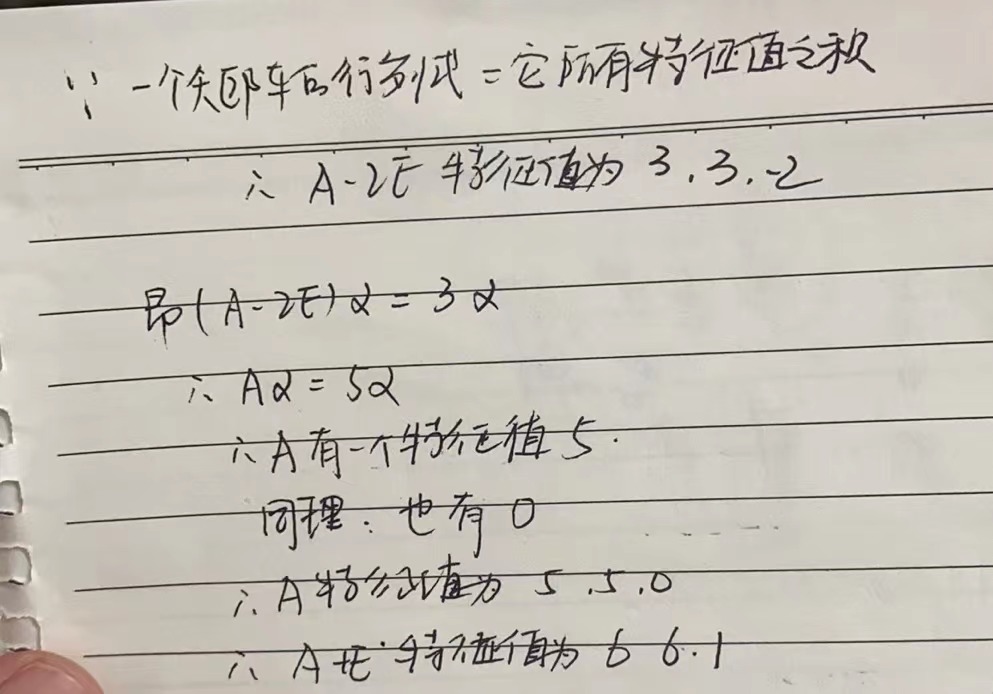 ∵ 一个矩阵的行列式 = 它所有特征值之积
∴ A-2E 特征值为 3.3.-2
即(A-2E)α = 3α
∴ Aα = 5α
∴ A有一个特征值 5.
同理：也有 0
∴ A特征值为 5.5.0
∴ A+E 特征值为 6 6.1